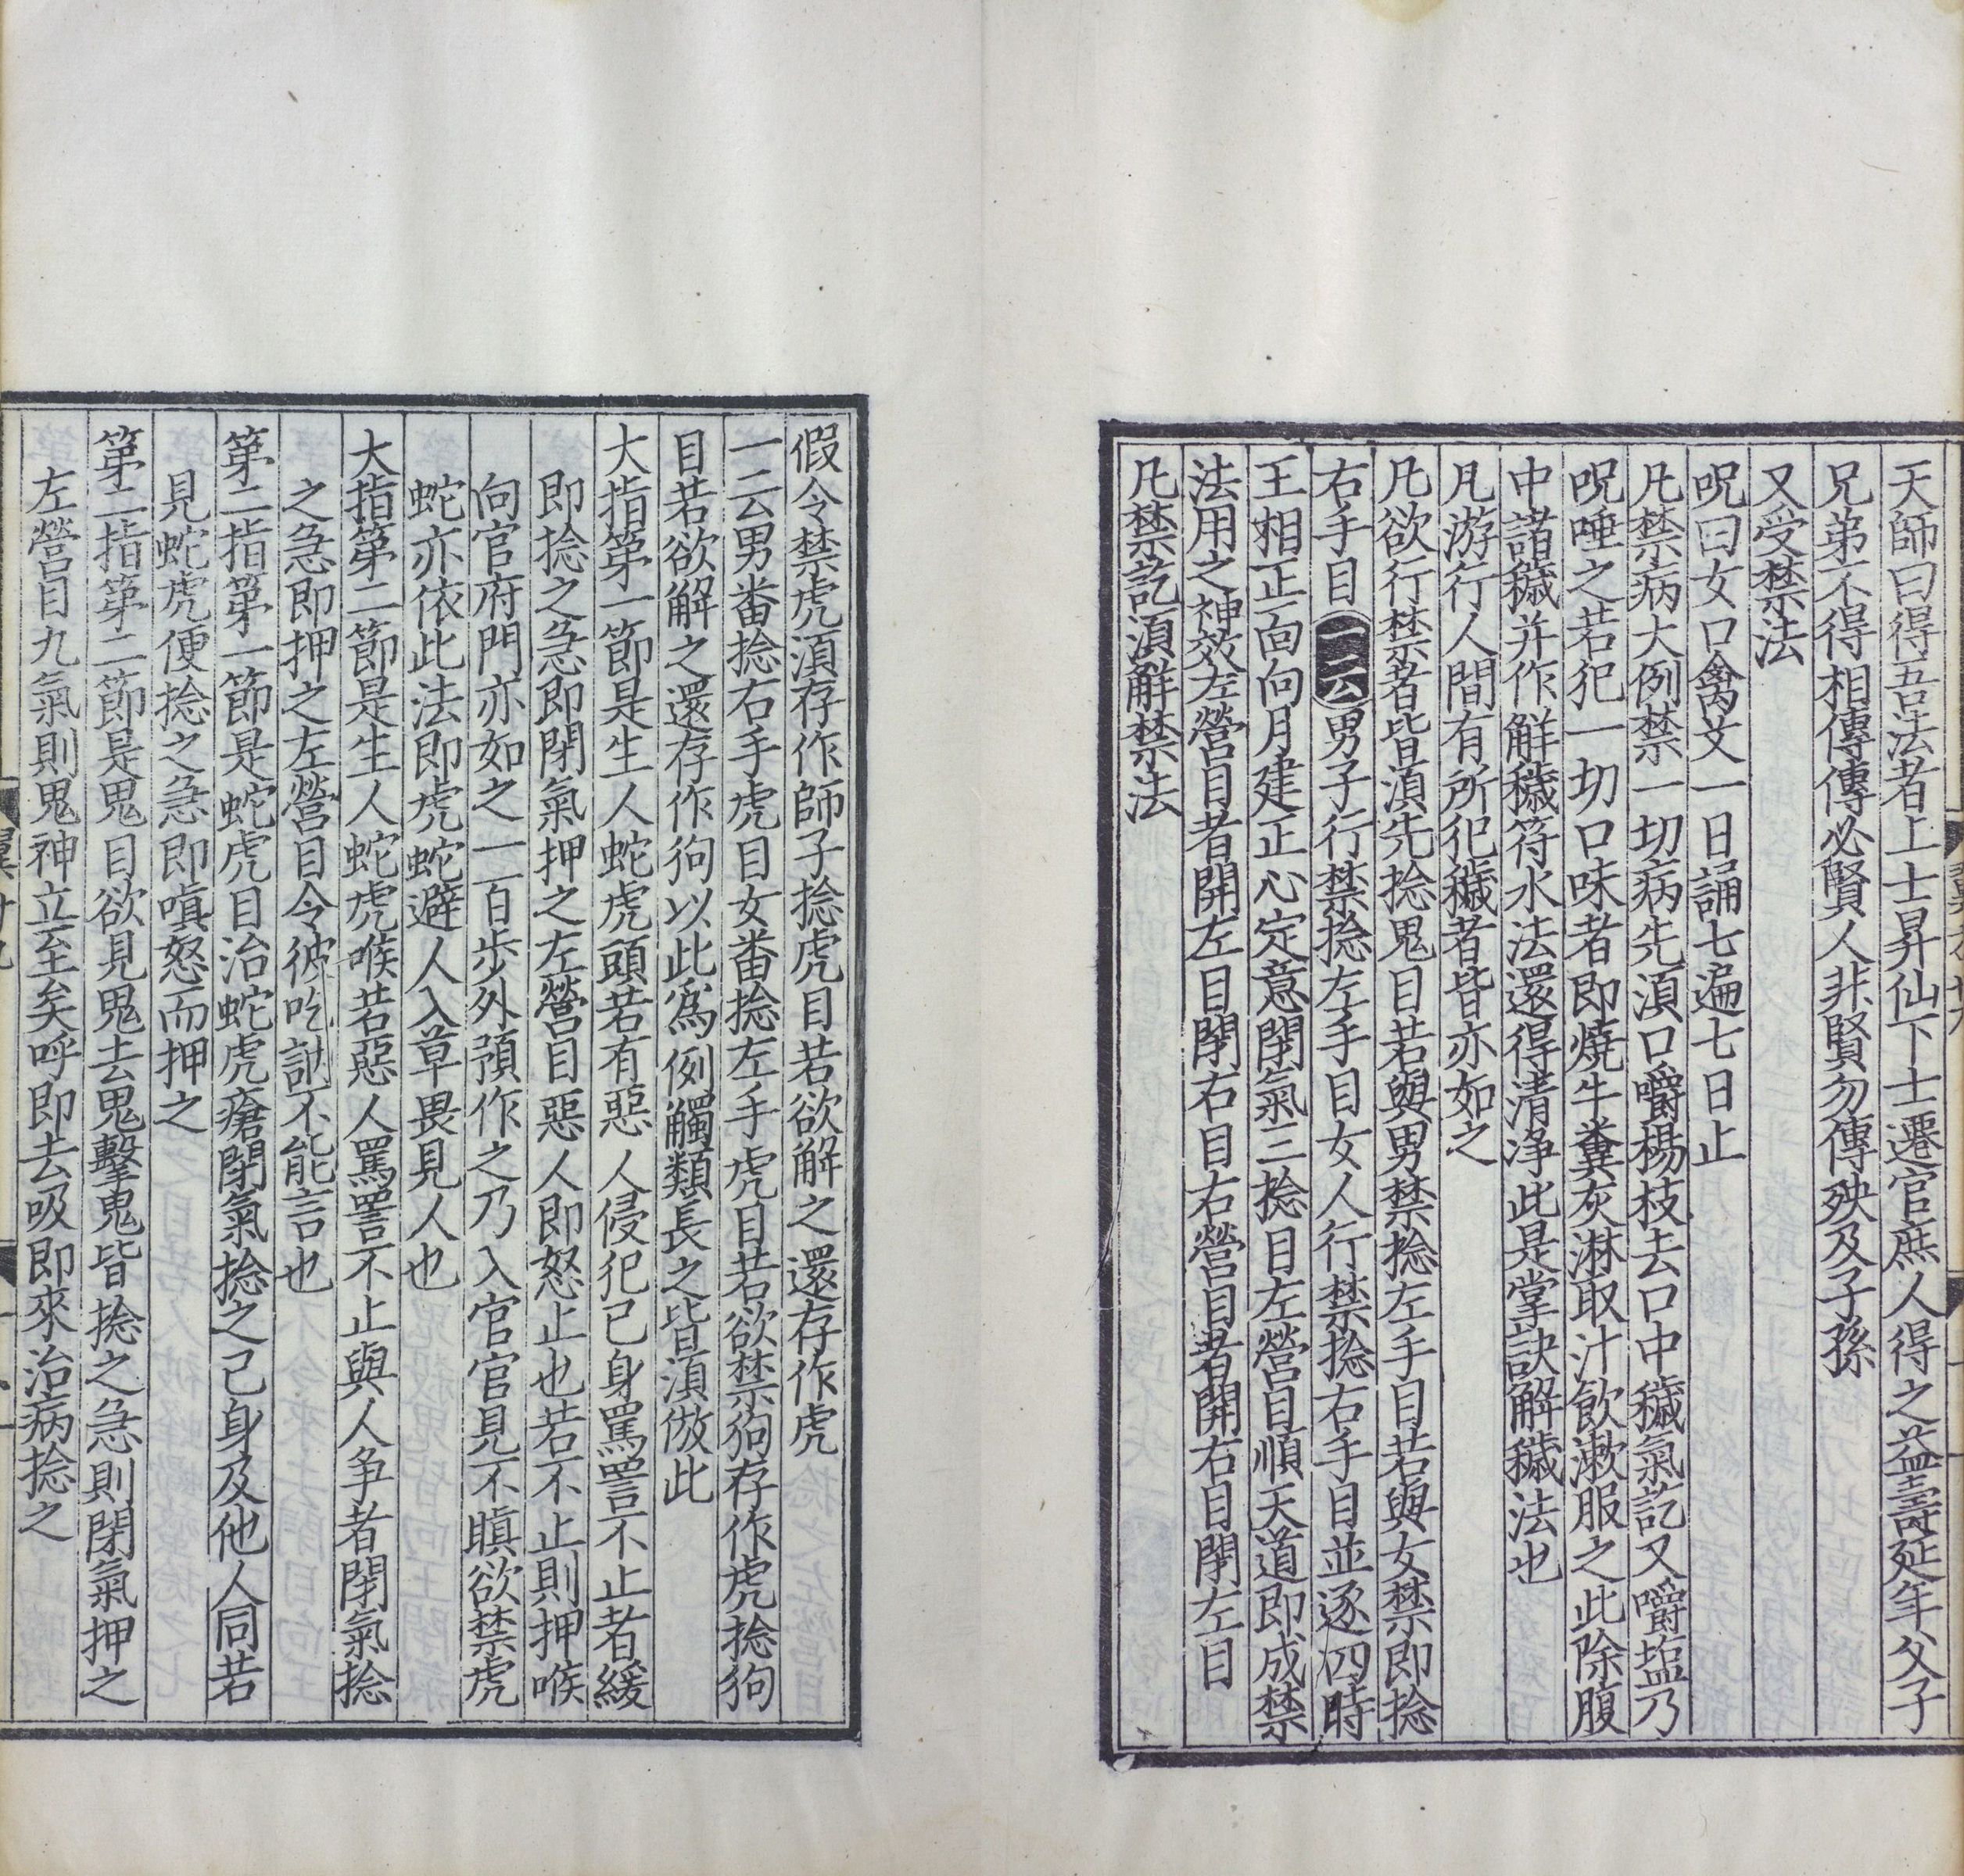 天師曰得吾法者上士昇仙下士遷官庶人得之益壽延年父子
兄弟不得相傳傳必賢人非賢勿傳殃及子孫
又受禁法
呪曰女口禽文一日誦七遍七日止
凡禁病大例禁一切病先湏口嚼楊枝去口中穢氣訖又嚼塩乃
呪唾之若犯一切口味者即燒牛糞灰淋取汁飲漱服之此除腹
中諸穢并作解穢符水法還得清淨此是掌訣解穢法也
凡游行人間有所犯穢者皆亦如之
凡欲行禁者皆湏先捻鬼目若與男禁捻左手目若與女禁即捻
右手目一云男子行禁捻左手目女人行禁捻右手目並逐四時
王相正面向月建正心定意閉氣三捻目左營目順天道即成禁
法用之神效左營目者開左目閉右目右營目者開右目閉左目
凡禁訖湏解禁法
假令禁虎湏存作師子捻虎目若欲解之還存作虎
一云男畨捻右手虎目女畨捻左手虎目若欲禁狗存作虎捻狗
目若欲解之還存作狗以此為例觸類長之皆湏倣此
大指第一節是生人蛇虎頭若有惡人侵犯己身罵詈不止者緩
即捻之急即閉氣押之左營目惡人即怒止也若不止則押喉
向官府門亦如之一百步外預作之乃入官官見不瞋欲禁虎
蛇亦依此法即虎蛇避人入草畏見人也
大指第二節是生人蛇虎喉若惡人罵詈不止與人爭者閉氣捻
之急即押之左營目令彼吃訥不能言也
第二指第一節是蛇虎目治蛇虎瘡閉氣捻之己身及他人同若
見蛇虎便捻之急即嗔怒而押之
第二指第二節是鬼目欲見鬼去鬼擊鬼皆捻之急則閉氣押之
左營目九氣則鬼神立至矣呼即去吸即來治病捻之